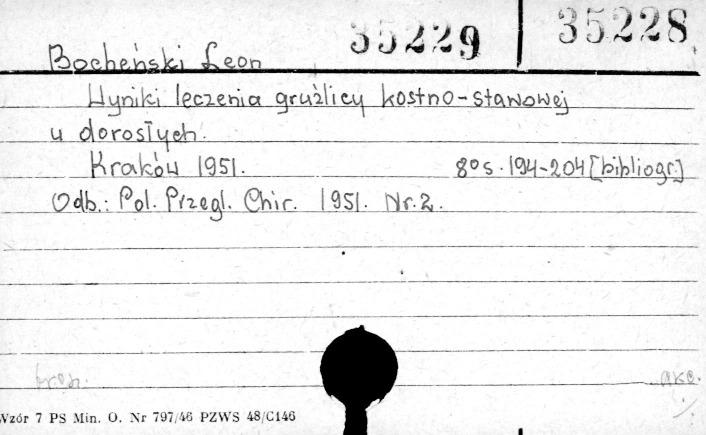 35229 | 35228
Bocheński Leon
Wyniki leczenia gruźlicy kostno-stawowej
u dorosłych.
Kraków 1951. 8° s. 194-204 [bibliogr.]
Odb.: Pol. Przegl. Chir. 1951. Nr. 2.
akc.
Wzór 7 PS Min. O. Nr 797/46 PZWS 48/C146